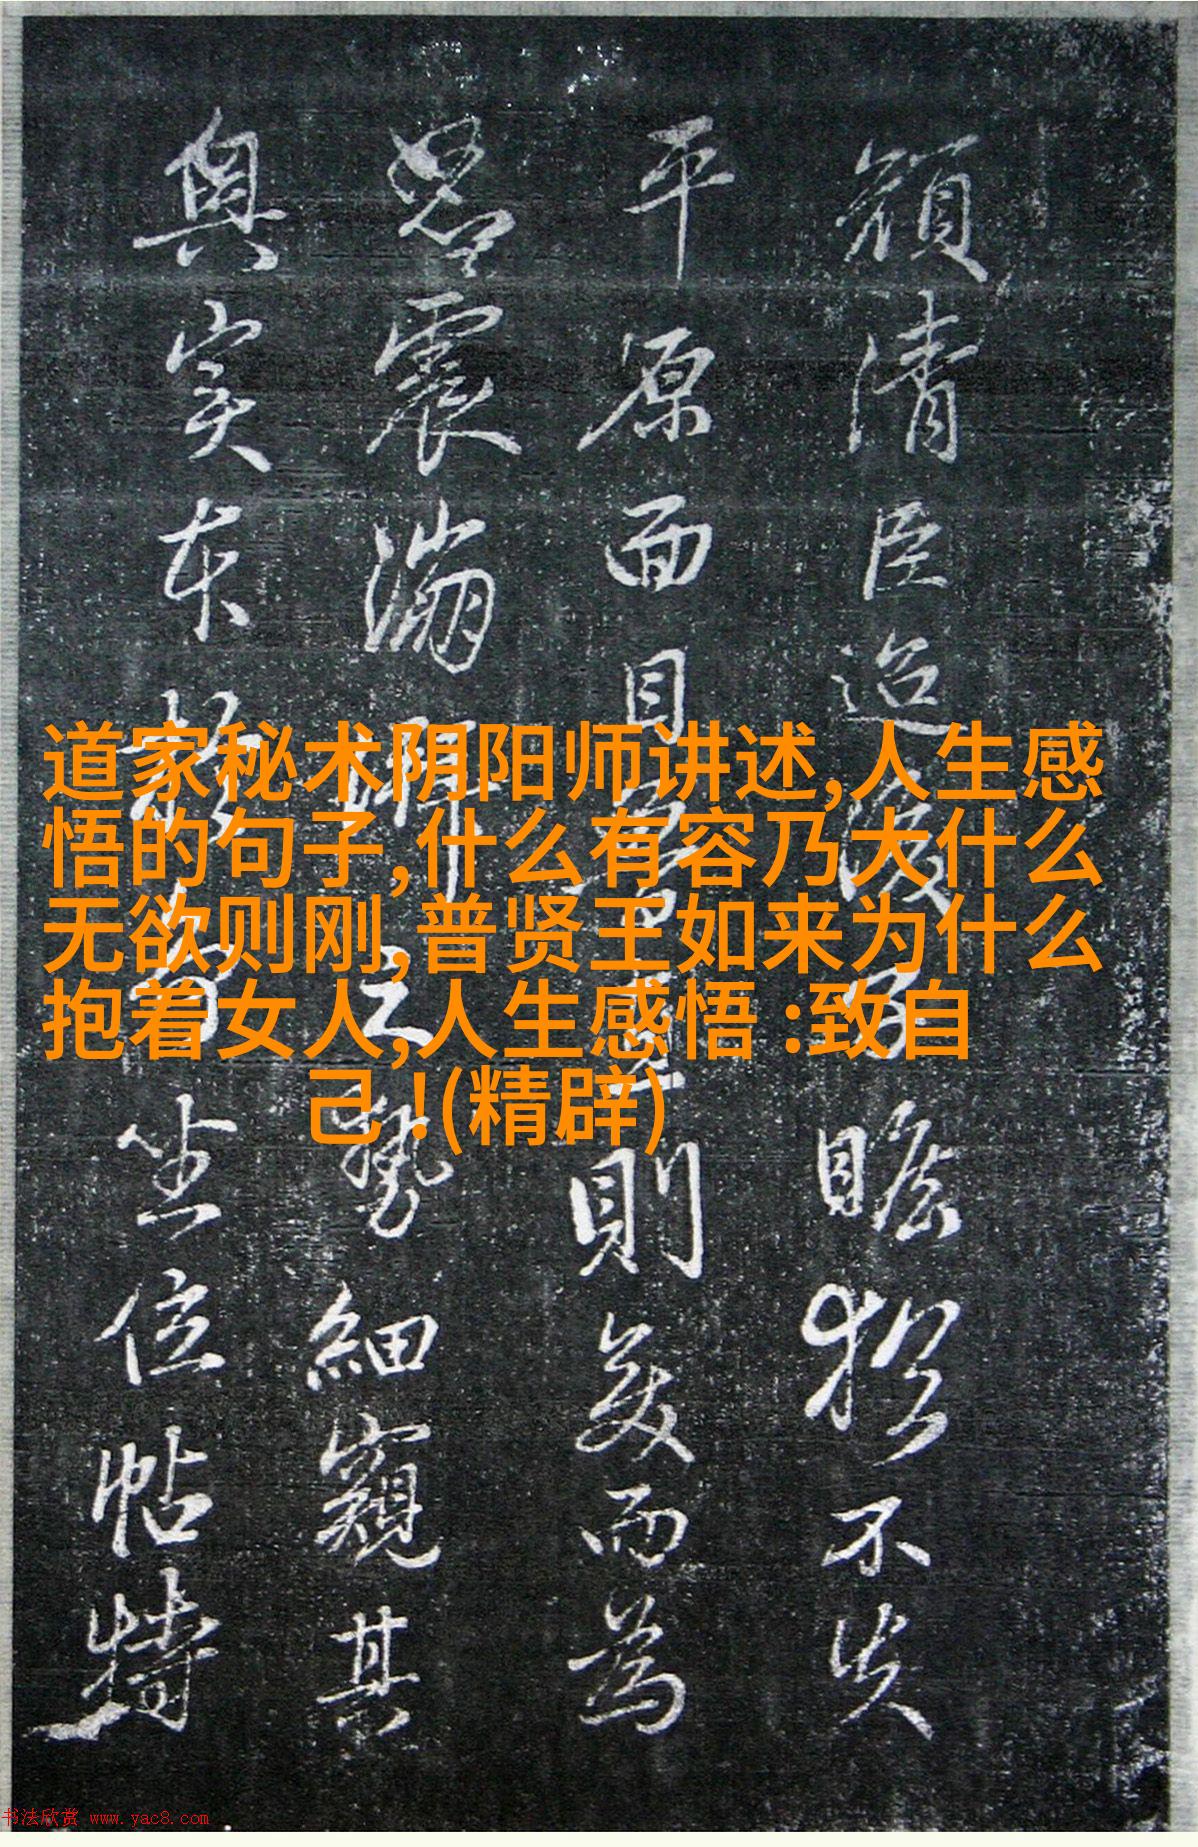 顏清臣迨子瞻猶不失
平原面目則而為
震之勢細窺其
奥实本坐位帖特
道家秘术阴阳师讲述,人生感
悟的句子,什么有容乃大什么
无欲则刚,普贤王如来为什么
抱着女人,人生感悟 :致自
己 !(精辟)
书法欣赏 www.yac8.com